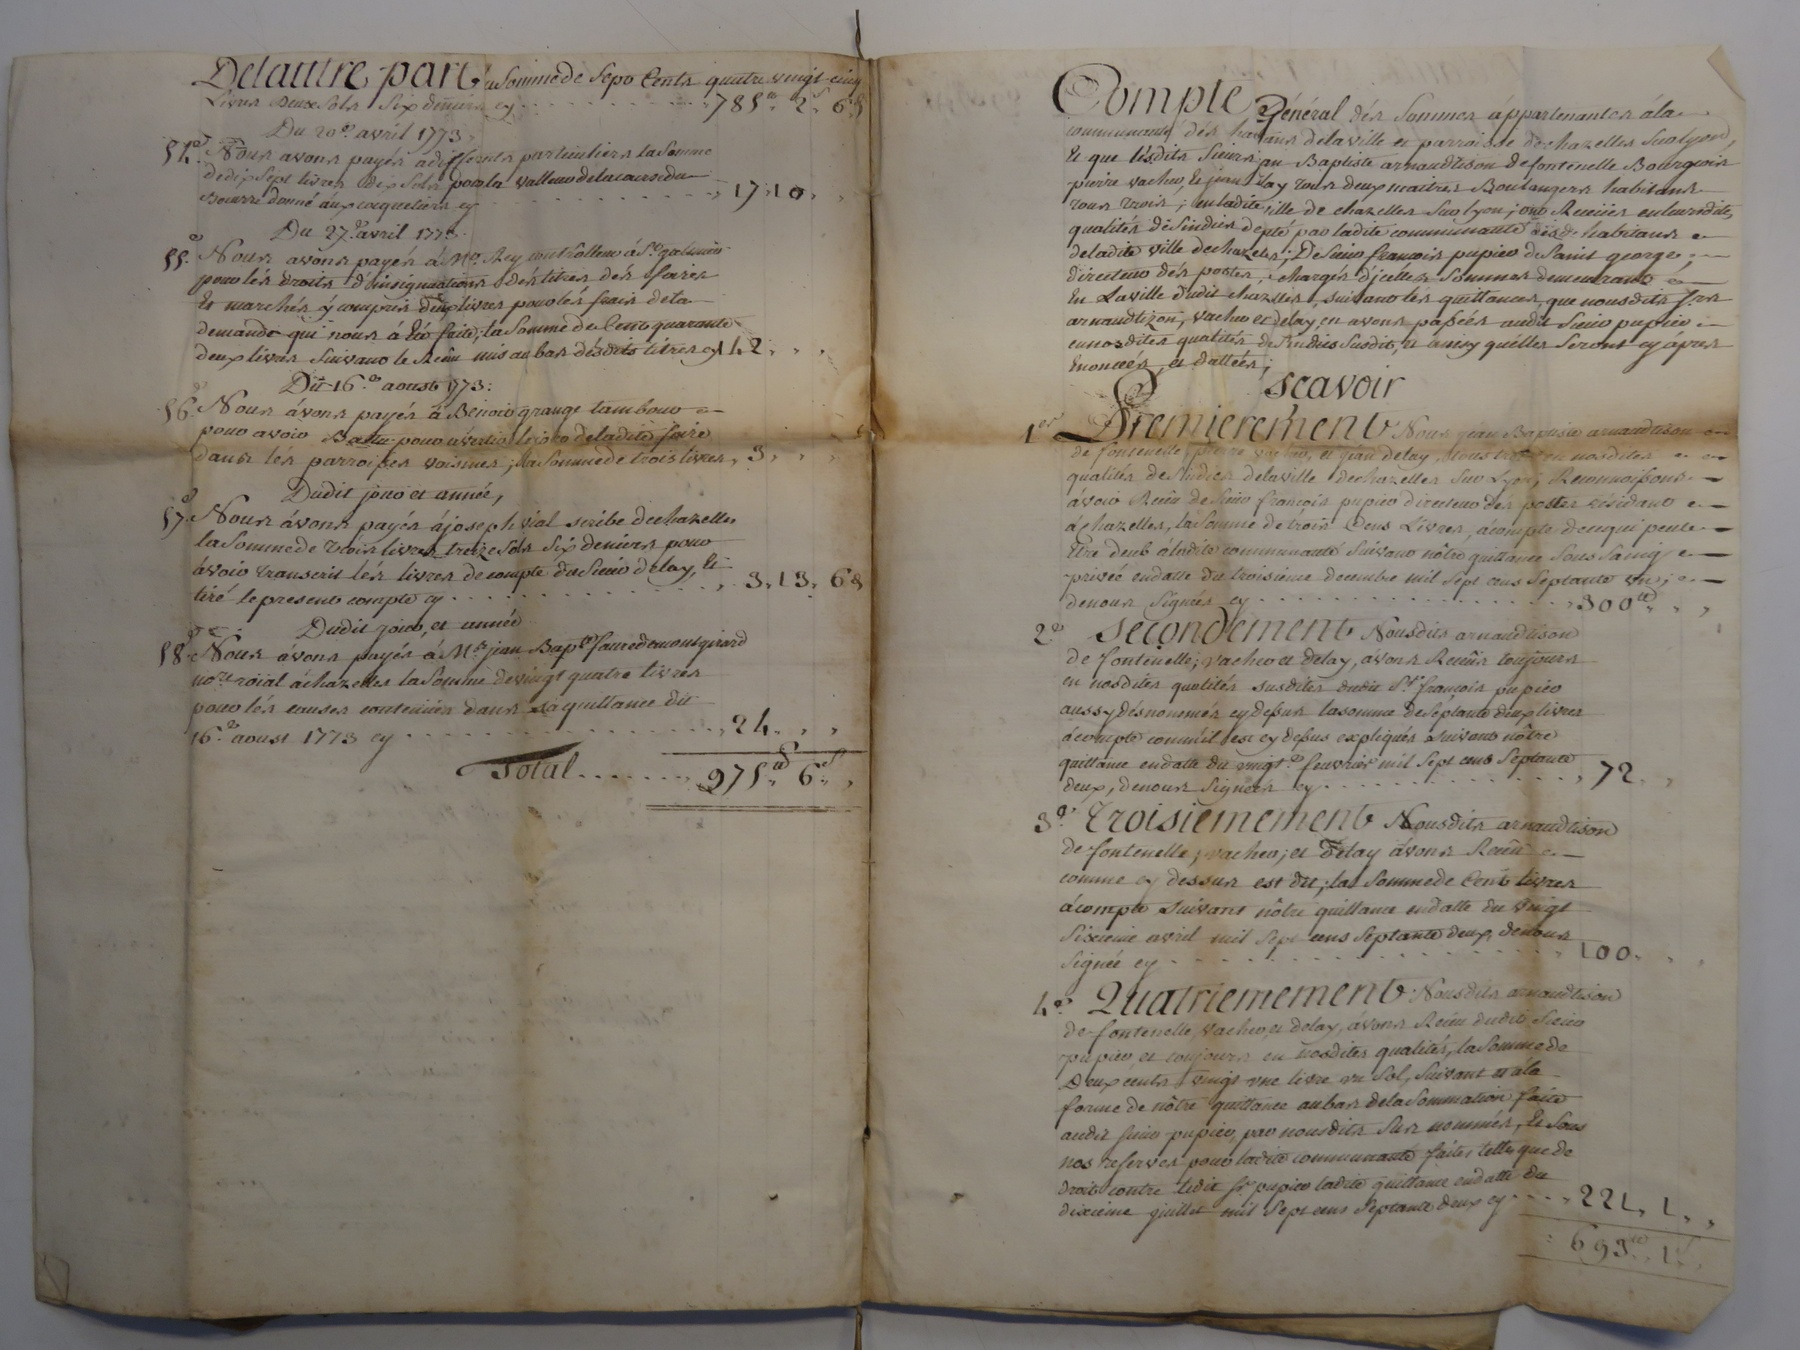 Delauttre part, la Somme de Sept Cents quatre vingt cinq
Livres deux Sols Six deniers cy . . . . . . . . 785tt 2s 6d
Du 20e avril 1773.
54e Nous avons payés a differents particuliers la Somme
de dix Sept livres dix Sols pour la valleur de la course du
Beurre donné aux coquetiers cy . . . . . . . . 17, 10, ,
Du 27e avril 1773.
55e Nous avons payés á Mr Rey controlleur á St galmier
pour lés droits d'insignuations dés titres dés foires
Et marchés y compris deux livres pour lés frais de la
demande qui nous á Eté faite, la Somme de Cent quarante
deux livres Suivant le Reçu mis au bas désdits titres cy 142, , ,
Du 16e aoust 1773:
56e Nous ávons payés á Benoit grange tambour
pour avoir Battu pour avertir de ladite foire
dans lés parroisses voisines; la Somme de trois livres, 3, , ,
Dudit jour et année,
57e Nous ávons payés á joseph vial scribe de chazelles
la Somme de trois livres treize Sols Six deniers pour
ávoir transcrit lés livres de compte du Sieur delay, Et
tiré le present compte cy . . . . . . . . , 3, 13, 6d
Dudit jour, et année
58e Nous ávons payés á Mr jean Bapte faure de montgirard
nore roial á chazelles la Somme de vingt quatre livres
pour lés causes contenües dans sa quittance du
16e aoust 1773 cy . . . . . . . . , 24, , ,
Total . . . . . . . , 975tt, 6s, ,
Compte Général dés Sommes áppartenantes á la
communauté dés habitans de la ville et parroisse de chazelles Sur lyon,
Et que lésdits Sieurs jean Baptiste arnaudtison de fontenelle Bourgeois
pierre vacher, Et jean delay tous deux maitres Boulangers habitans
tous trois; en ladite ville de chazelles Sur lyon; ont Reçües en leursdites
qualités de Sindics de par ladite communauté des habitans
de ladite ville de chazelles; De Sieur françois pupier de Saint george;
directeur dés postes; chargés d'jcelles Sommes demeurant
En La ville dudit chazelles, suivant lés quittances, que nousdits Srs
arnaudtizon, vacher et delay en avons passées audit Sieur pupier
en nosdites qualités de Sindics Susdits, et ainsy quélles Seront cy áprés
Enoncées, et dattées;
Scavoir
1er Premierement Nous jean Baptiste arnaudtison
de fontenelle, pierre vacher, et jean delay, tous trois en nosdites
qualités de Sindics de la ville de chazelles Sur Lyon; Reconnoissons
ávoir Reçu de Sieur françois pupier directeur des postes résidant
á chazelles, la Somme de trois Cens Livres, ácompte de ce qui peut
Etre deub á ladite communauté Suivant nôtre quittance Sous Saing
privée en datte du troisième decembre mil Sept cens Septante un;
de nous Signée cy . . . . . . . . , 300tt, , ,
2e Secondement Nousdits arnaudtison
de fontenelle; vacher et delay, ávons Reçüs toujours
en nosdites qualités susdites dudit Sr françois pupier
aussy désnommés cy dessus la somme de Septante deux livres
ácompte comme il est cy dessus expliqués Suivant nôtre
quittance en datte du vingte fevrier mil Sept cens Septante
deux, de nous Signée cy . . . . . . . . , 72, ,
3e Troisiemement Nousdits arnaudtison
de fontenelle; vacher; et delay ávons Reçü
comme cy dessus est dit; la Somme de Cent livres
ácompte Suivant nôtre quittance en datte du vingt
Sixieme avril mil Sept cens Septante deux, de nous
Signée cy . . . . . . . . 100, , ,
4e Quatriemement Nousdits arnaudtison
de fontenelle, vacher, et delay, ávons Reçu dudit Sieur
pupier et toujours en nosdites qualités, la Somme de
Deux cents vingt une livre un Sol, Suivant et á la
forme de nôtre quittance au bas de la Sommation faite
audit Sieur pupier, par nousdits Sus nommés, Et Sous
nos reserves pour ladite communauté faites telles que de
droit contre ledit Sr pupier ladite quittance en datte du
dixième juillet mil Sept cens Septante deux cy . . . , 221, 1, ,
693tt, 1s,